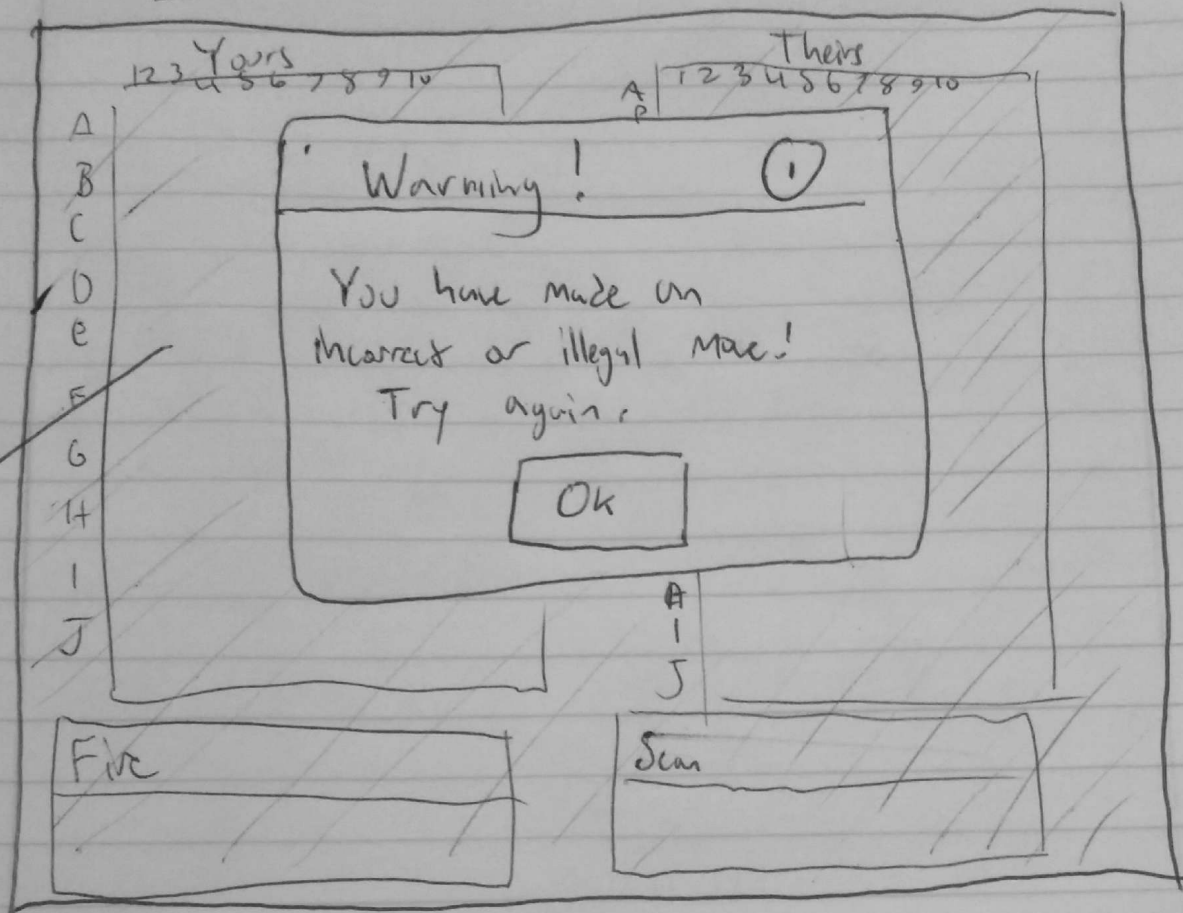 Yours
1 2 3 4 5 6 7 8 9 10
Theirs
1 2 3 4 5 6 7 8 9 10
A
B
C
D
e
F
G
H
I
J
A
B
Warning!
You have made an
incorrect or illegal move!
Try again.
Ok
H
I
J
Fire
Scan